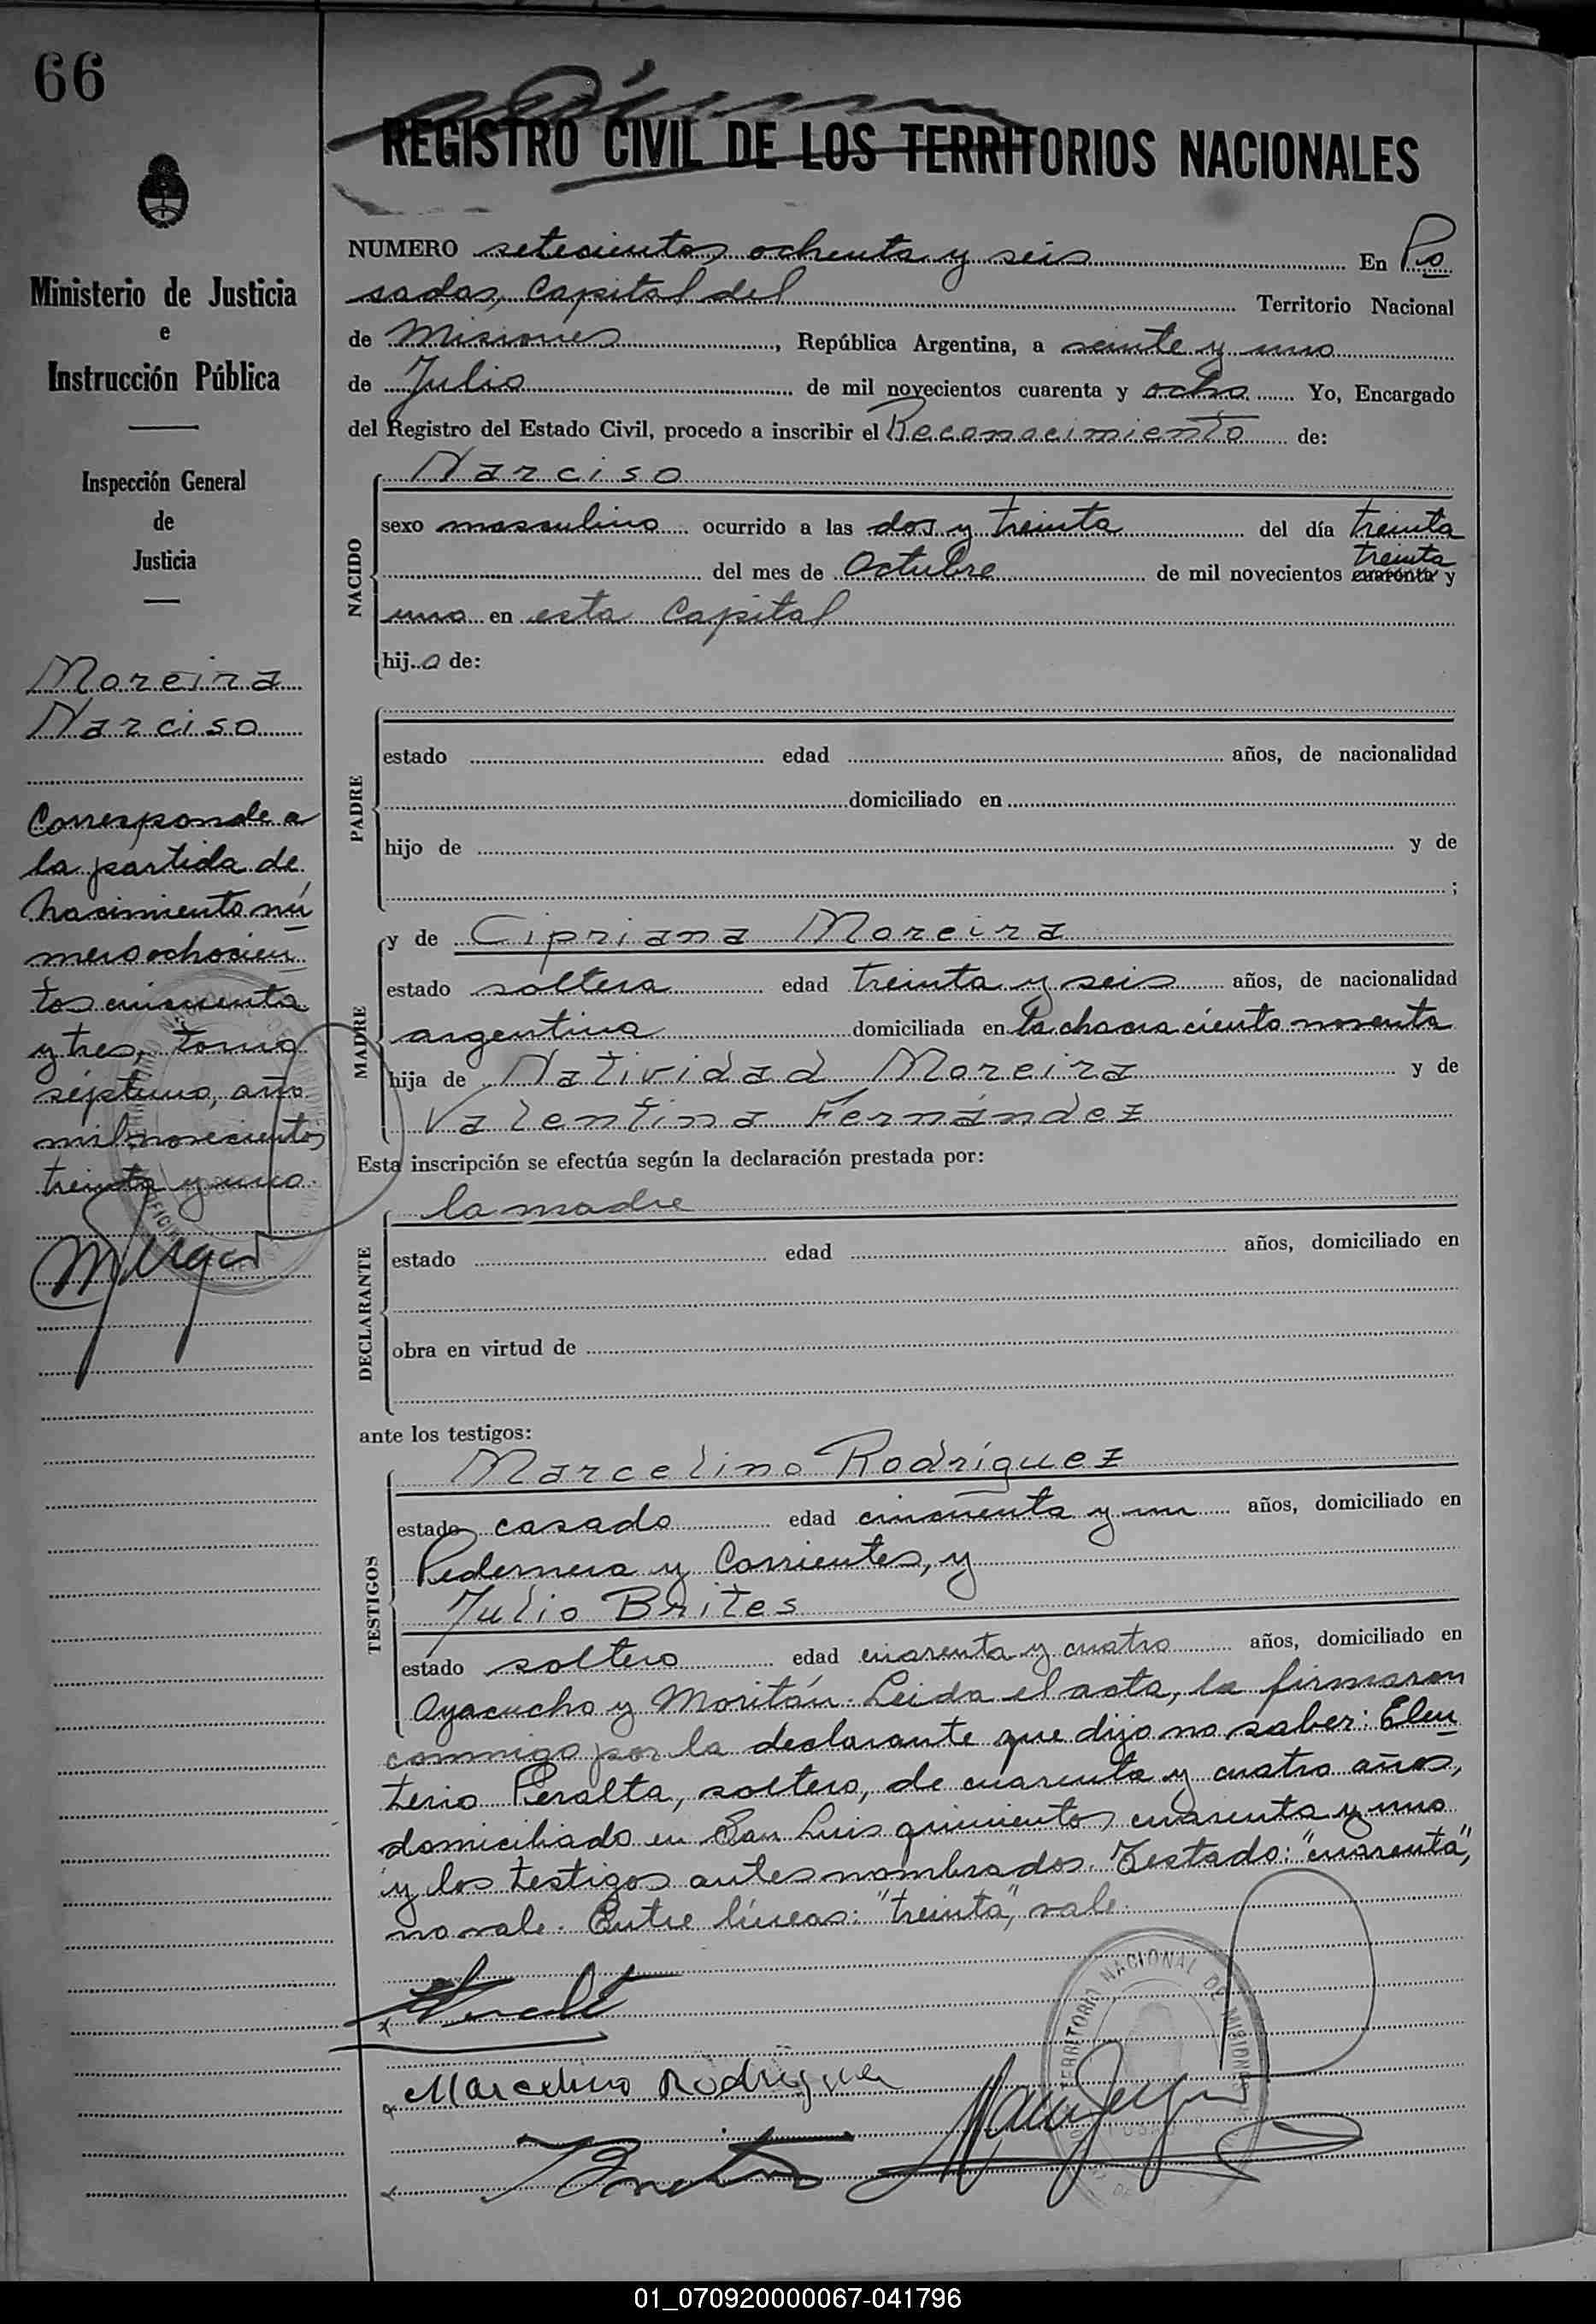 66
REGISTRO CIVIL DE LOS TERRITORIOS NACIONALES
Ministerio de Justicia
e
Instrucción Pública
Inspección General
de
Justicia
Moreira
Narciso
Corresponde a
la partida de
nacimiento nú
mero ochocien
tos cincuenta
y tres, tomo
séptimo, año
mil novecientos
treinta y uno.
NUMERO setecientos ochenta y seis En Po
sadas, Capital del Territorio Nacional
de Misiones, República Argentina, a veinte y uno
de Julio de mil novecientos cuarenta y ocho Yo, Encargado
del Registro del Estado Civil, procedo a inscribir el Reconocimiento de:
NACIDO
Narciso
sexo masculino ocurrido a las dos y treinta del día treinta
treinta
del mes de Octubre de mil novecientos cuarenta y
uno en esta Capital
hijo de:
PADRE
estado edad años, de nacionalidad
domiciliado en
hijo de y de
;
MADRE
y de Cipriana Moreira
estado soltera edad treinta y seis años, de nacionalidad
argentina domiciliada en la chacra ciento noventa
hija de Natividad Moreira y de
Valentina Fernández
Esta inscripción se efectúa según la declaración prestada por:
DECLARANTE
la madre
estado edad años, domiciliado en
obra en virtud de
ante los testigos:
TESTIGOS
Marcelino Rodríguez
estado casado edad cincuenta y un años, domiciliado en
Pedernera y Corrientes, y
Julio Brites
estado soltero edad cuarenta y cuatro años, domiciliado en
Ayacucho y Moritán. Leida el acta, la firmaron
conmigo por la declarante que dijo no saber: Eleu
terio Peralta, soltero, de cuarenta y cuatro años,
domiciliado en San Luis quinientos cuarenta y uno
y los testigos antes nombrados. Testado: "cuarenta",
no vale. Entre líneas: "treinta", vale.
Marcelino Rodriguez
TERRITORIO NACIONAL DE MISIONES
01_070920000067-041796